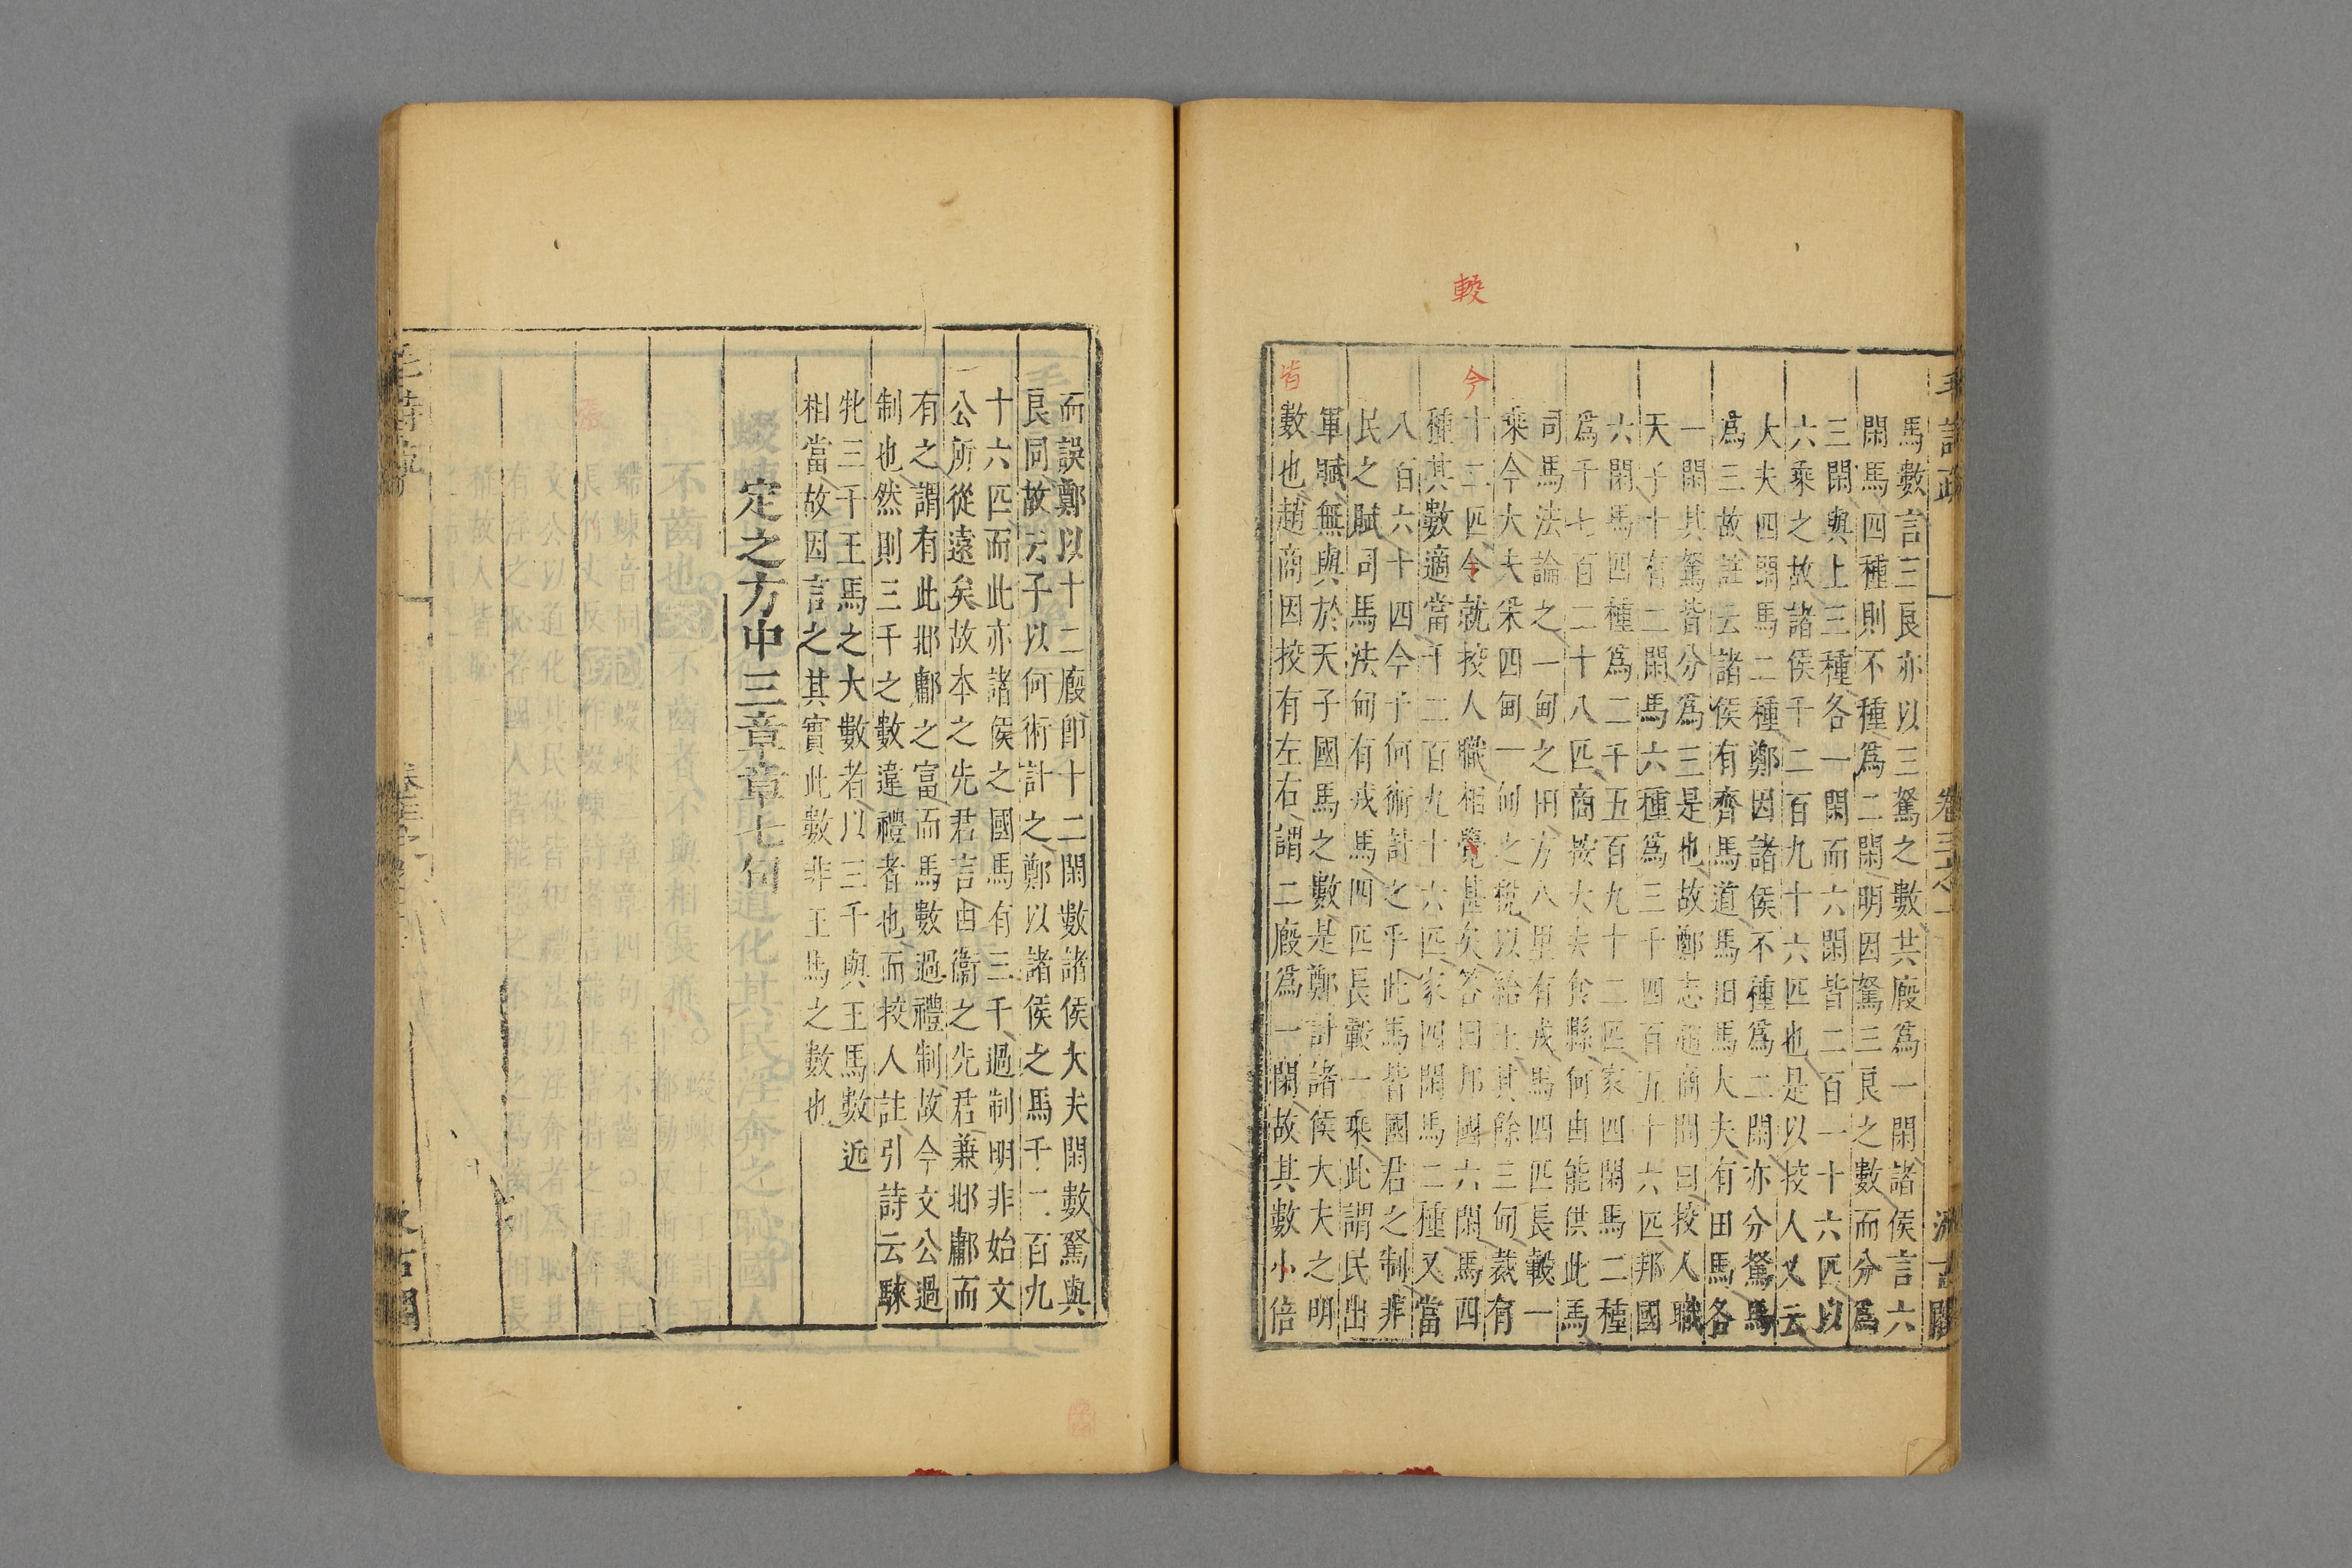 馬數言三良亦以三駑之數共廄爲一閑諸侯言六
閑馬四種則不種爲二閑明因駑三良之數而分爲
三閑與上三種各一閑而六閑皆二百一十六匹以
六乘之故諸侯千二百九十六匹也是以挍人又云
大夫四閑馬二種鄭因諸侯不種爲二閑亦分駑馬
爲三故註云諸侯有齊馬道馬田馬大夫有田馬各
一閑其駑皆分爲三是也故鄭志趙商問曰挍人職
天子十有二閑馬六種爲三千四百五十六匹邦國
六閑馬四種爲二千五百九十二匹家四閑馬二種
爲千七百二十八匹商按大夫食縣何由能供此馬
司馬法論之一甸之田方八里有戎馬四匹長轂一
乘今大夫采四甸一甸之稅以給王其餘三甸裁有
十二匹今就挍人職相覺甚矣答曰邦國六閑馬四
種其數適當千二百九十六匹家四閑馬二種又當
八百六十四今子何術計之乎此馬皆國君之制非
民之賦司馬法甸有戎馬四匹長轂一乘此謂民出
軍賦無與於天子國馬之數是鄭計諸侯大夫之明
數也趙商因挍有左右謂二廄爲一閑故其數小倍
而誤鄭以十二廄卽十二閑數諸侯大夫閑數駑與
良同故云子以何術計之鄭以諸侯之馬千二百九
十六匹而此亦諸侯之國馬有三千過制明非始文
公所從遠矣故本之先君言由衞之先君兼邶鄘而
有之謂有此邶鄘之富而馬數過禮制故今文公過
制也然則三千之數違禮者也而挍人註引詩云騋
牝三千王馬之大數者以三千與王馬數近
相當故因言之其實此數非王馬之數也
定之方中三章章七句
毛詩疏
卷三之一
汲古閣
轂
今
皆